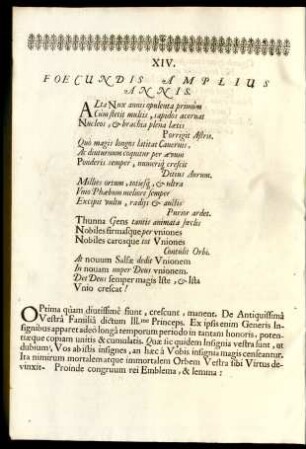 XIV.
FOECUNDIS AMPLIUS
ANNIS.
ALta Nux annis opulenta primùm
Cùm stetit multis, rapidos acervat
Nucleos, & brachia plena lætis
Porrigit Astris.
Quò magis longùm latitat Cavernis,
Ac diuturnum coquitur per ævum
Ponderis semper, numeriq́ crescit
Ditius Aurum.
Millies ortum, totiesq́, & ultra
Vno Phæbum meliore semper
Excipit vultu, radijs & auctis
Purior ardet.
Thunna Gens tantis animata sæclis
Nobiles firmasque per vniones
Nobiles carosque tot Vniones
Contulit Orbi.
At nouum Salsæ dedit Vnionem
In nouam nuper Deus vnionem.
Det Deus semper magis iste, & ista
Vnio crescat!
OPrima quàm diutissimè fiunt, crescunt, manent. De Antiquissimâ
Vestrâ Familiâ dictum Ill.me Princeps. Ex ipsis enim Generis In-
signibus apparet adeò longâ temporum periodo in tantam honoris, poten-
tiæque copiam unitis & cumulatis. Quæ sic quidem Insignia vestra sunt, ut
dubium, Vos ab istis insignes, an hæc à Vobis insignia magis censeantur.
Ita nimirum mortalem atque immortalem Orbem Vestra sibi Virtus de-
vinxit. Proinde congruum rei Emblema, & lemma: